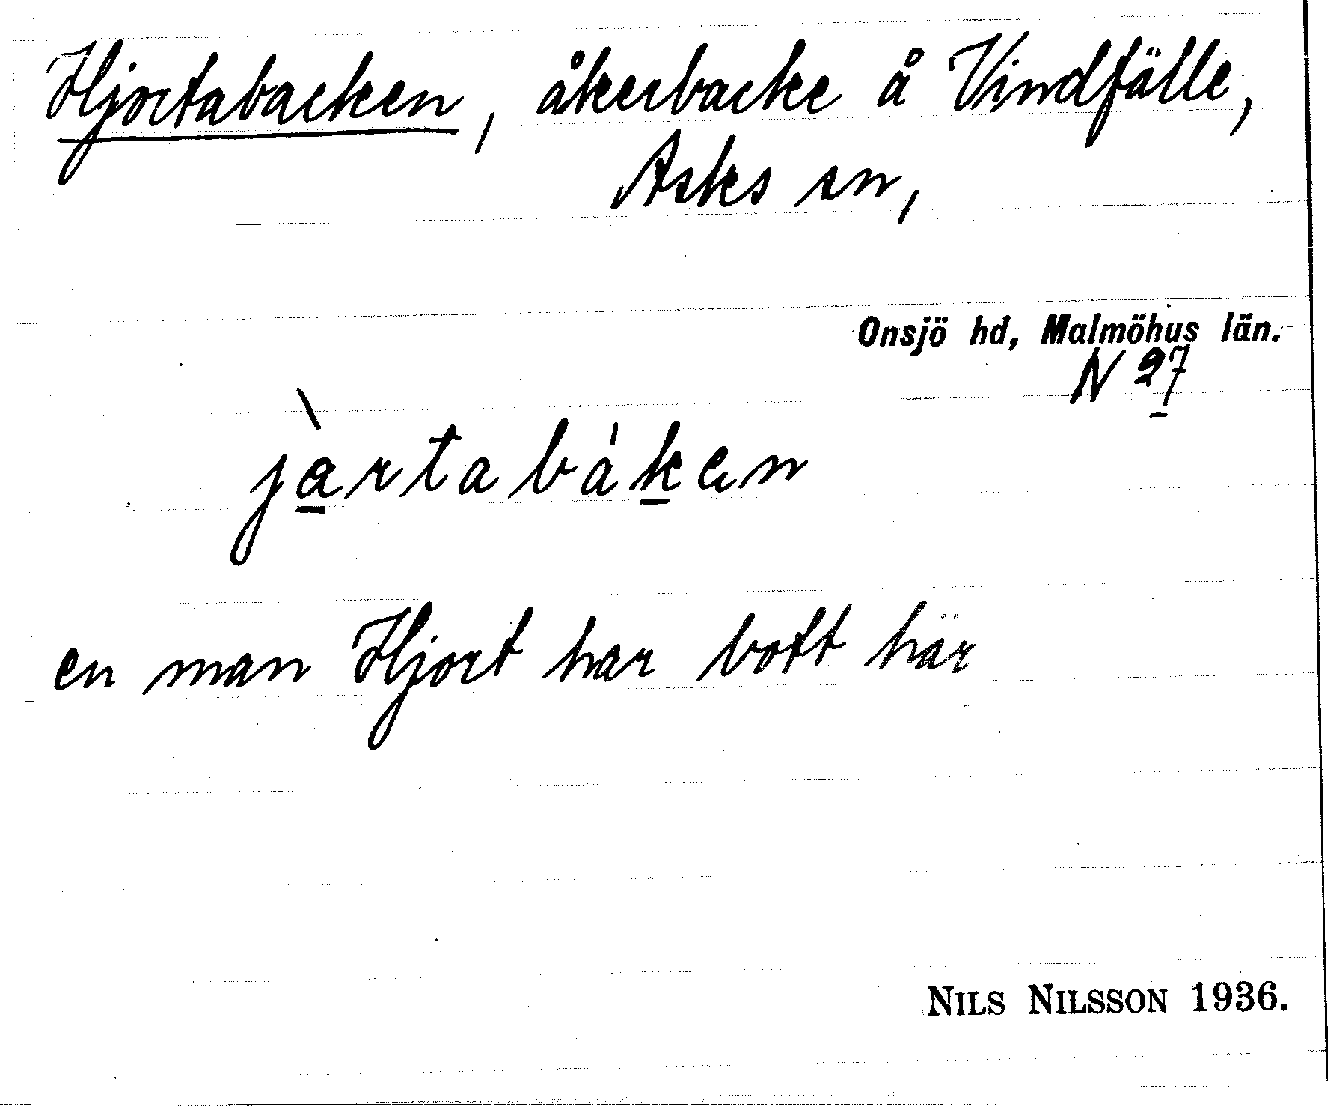 Hjortabacken, åkerbacke å Vindfälle,
Asks sn,
Onsjö hd, Malmöhus län.
N 27
jàrtabàken
en man Hjort har bott här
NILS NILSSON 1936.